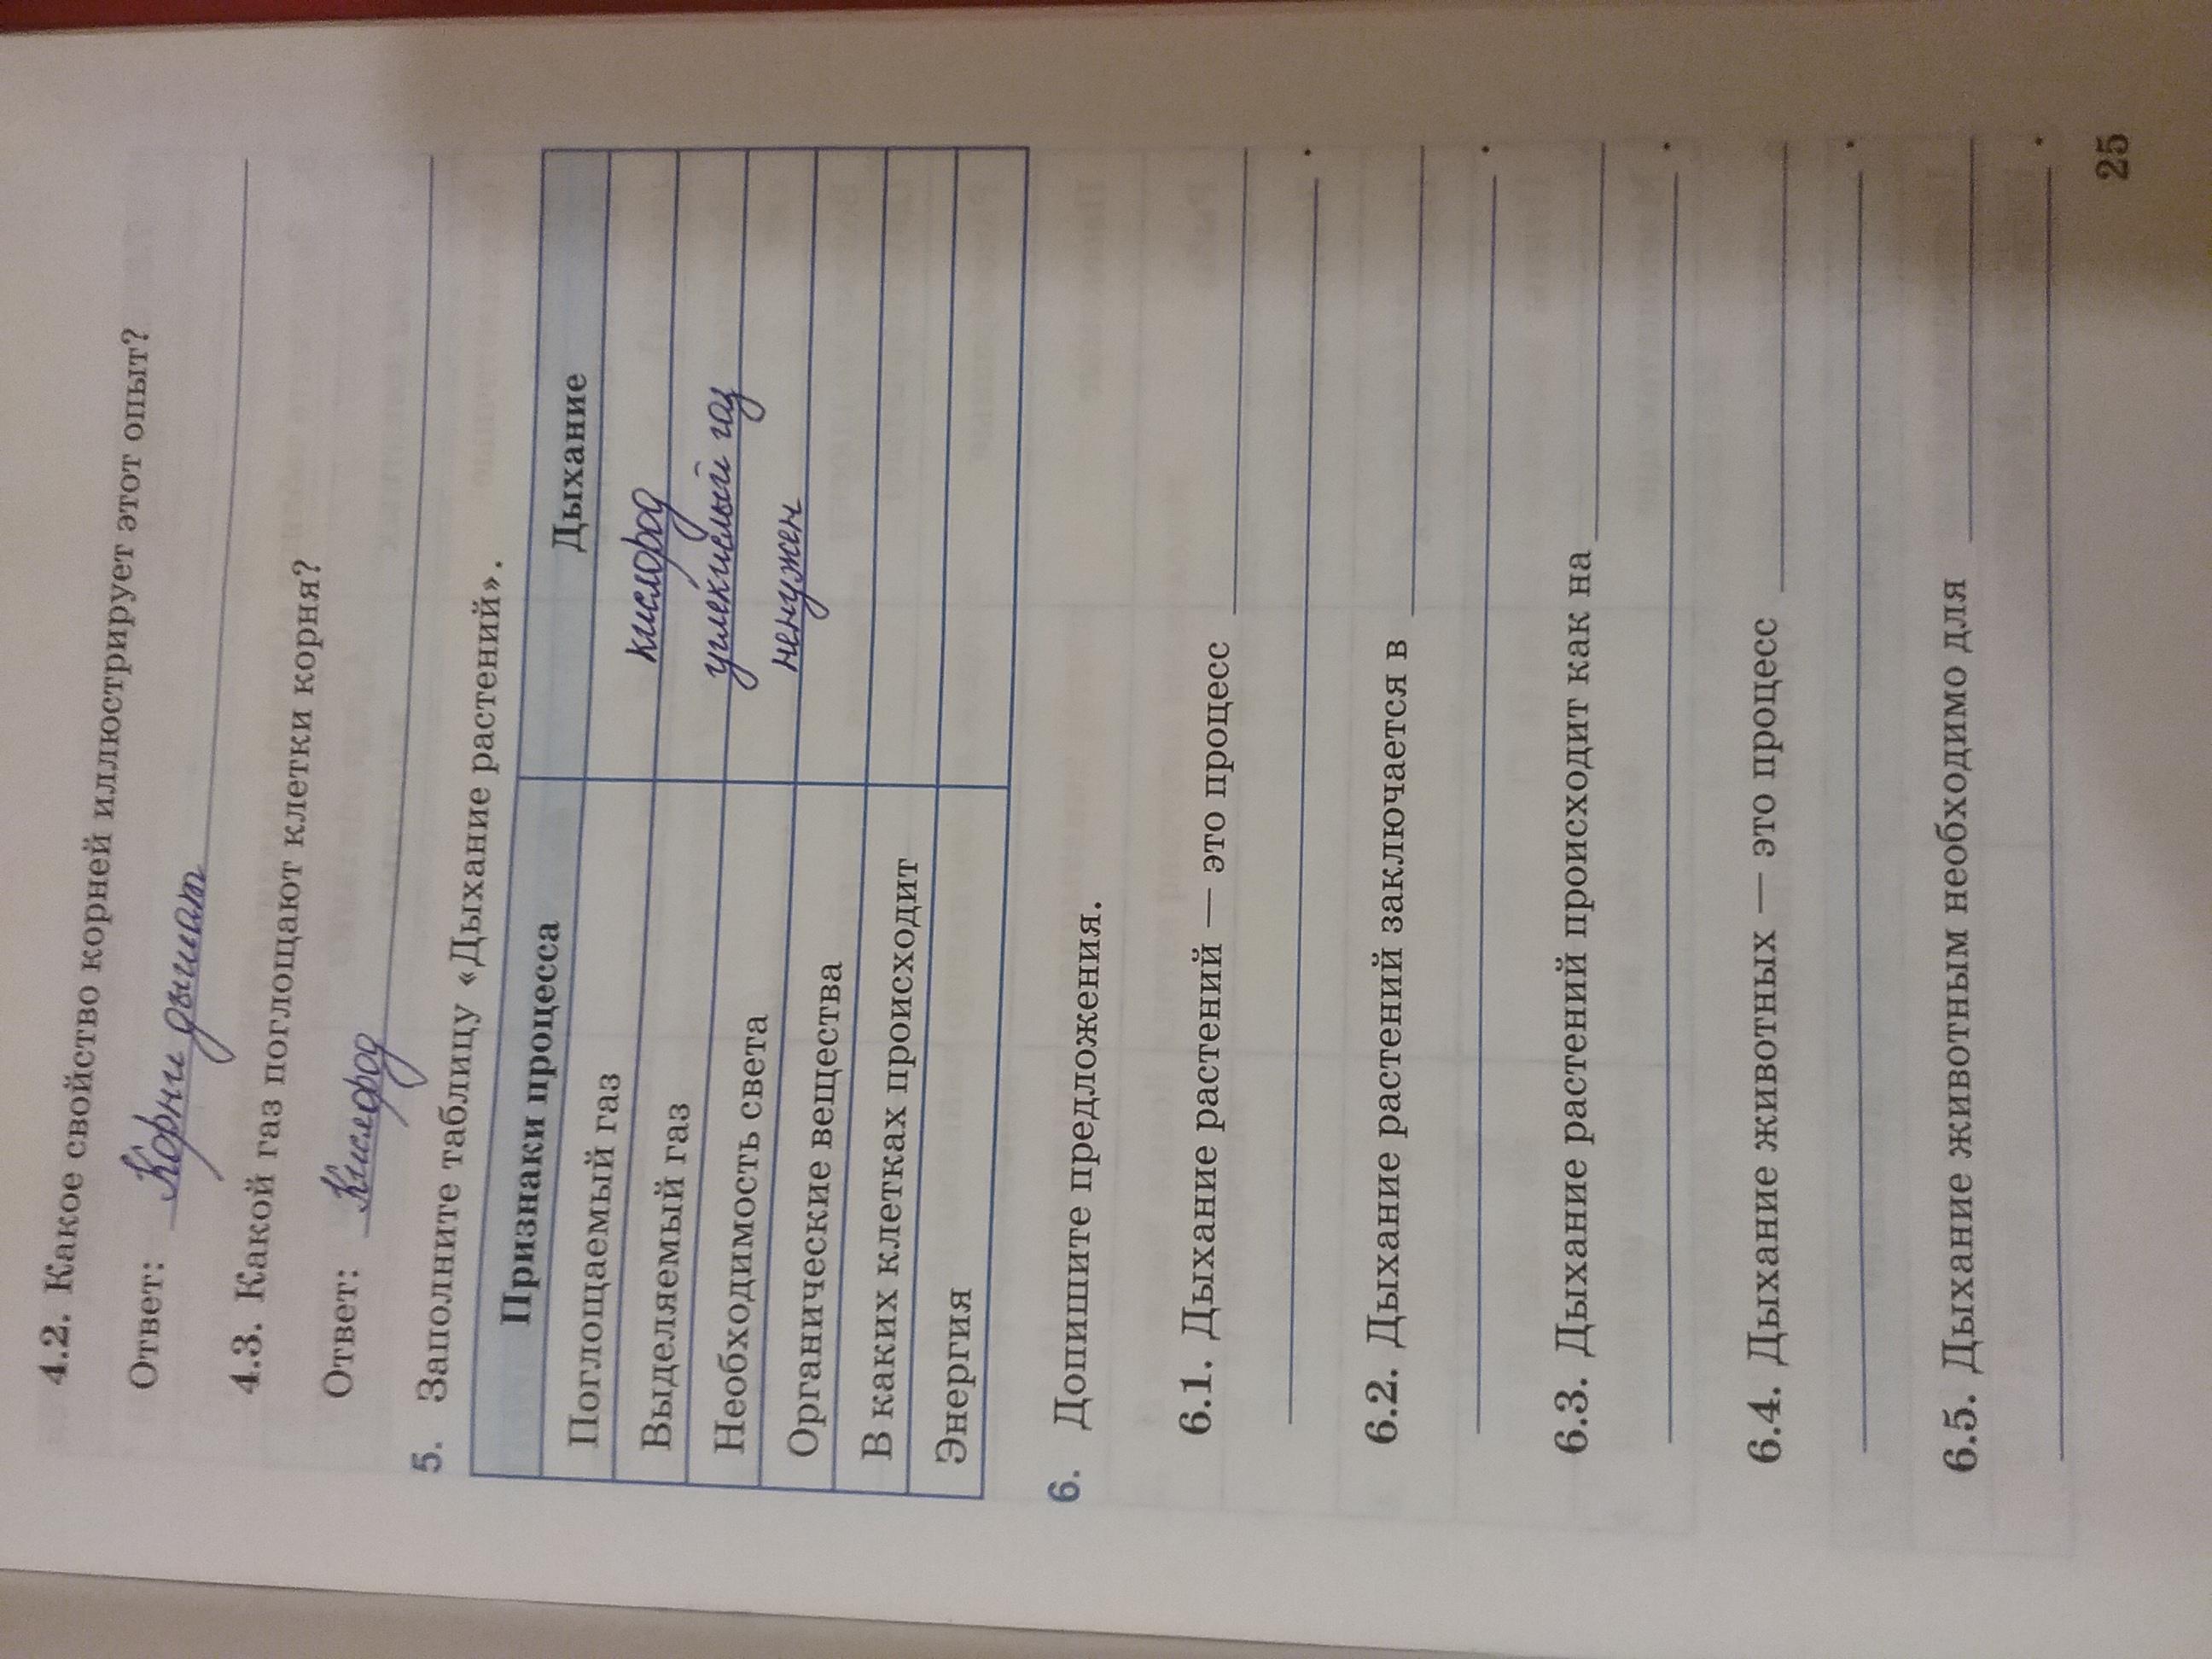 4.2. Какое свойство корней иллюстрирует этот опыт?
Ответ: Корни дышат
4.3. Какой газ поглощают клетки корня?
Ответ: Кислород
5. Заполните таблицу «Дыхание растений».
Признаки процесса Дыхание
Поглощаемый газ кислород
Выделяемый газ углекислый газ
Необходимость света ненужен
Органические вещества
В каких клетках происходит
Энергия
6. Допишите предложения.
6.1. Дыхание растений — это процесс
.
6.2. Дыхание растений заключается в
.
6.3. Дыхание растений происходит как на
.
6.4. Дыхание животных — это процесс
.
6.5. Дыхание животным необходимо для
.
25